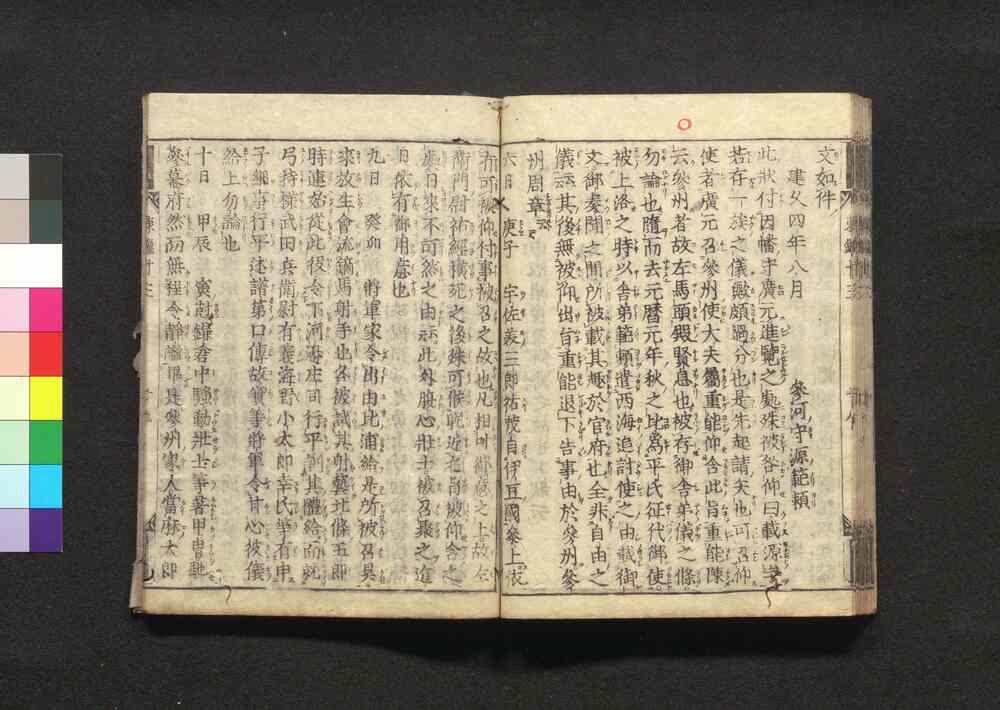 文如件
建久四年八月
參河守源範頼
此狀付因幡守廣元進覽之處殊被咎仰曰載源字
若存一族之儀歟頗過分也是先起請失也可召仰
使者廣元召參州使大夫屬重能仰含此旨重能陳
云參州者故左馬頭殿賢息也被存御舎弟儀之條
勿論也隨而去元曆元年秋之比爲平氏征伐御使
被上洛之時以舎弟範頼遣西海追討使之由載御
文御奏聞之間所被載其趣於官府也全非自由之
儀云云其後無被仰出旨重能退下告事由於參州參
州周章云云
六日 庚子 宇佐美三郎祐茂自伊豆國參上依
有可被仰付事被召之故也凡相叶御意之上故左
衛門尉祐經橫死之後殊可候昵近之旨被仰含之
處日來不可然之由云云此外腹心壯士被召聚之近
日依有御用意也
九日 癸卯 將軍家令出由比浦給是所被召具
來放生會流鏑馬射手也各被試其射藝北條五郎
時連始從此役令下河邊庄司行平訓其體給而就
弓持樣武田兵衛尉有義海野小太郎幸氏等有申
子細等行平述譜第口傳故實等將軍令甘心被儀
給上勿論也
十日 甲辰 寅尅鎌倉中騷動壯士等著甲冑馳
參幕府然而無程令靜謐畢是參州家人當麻太郎